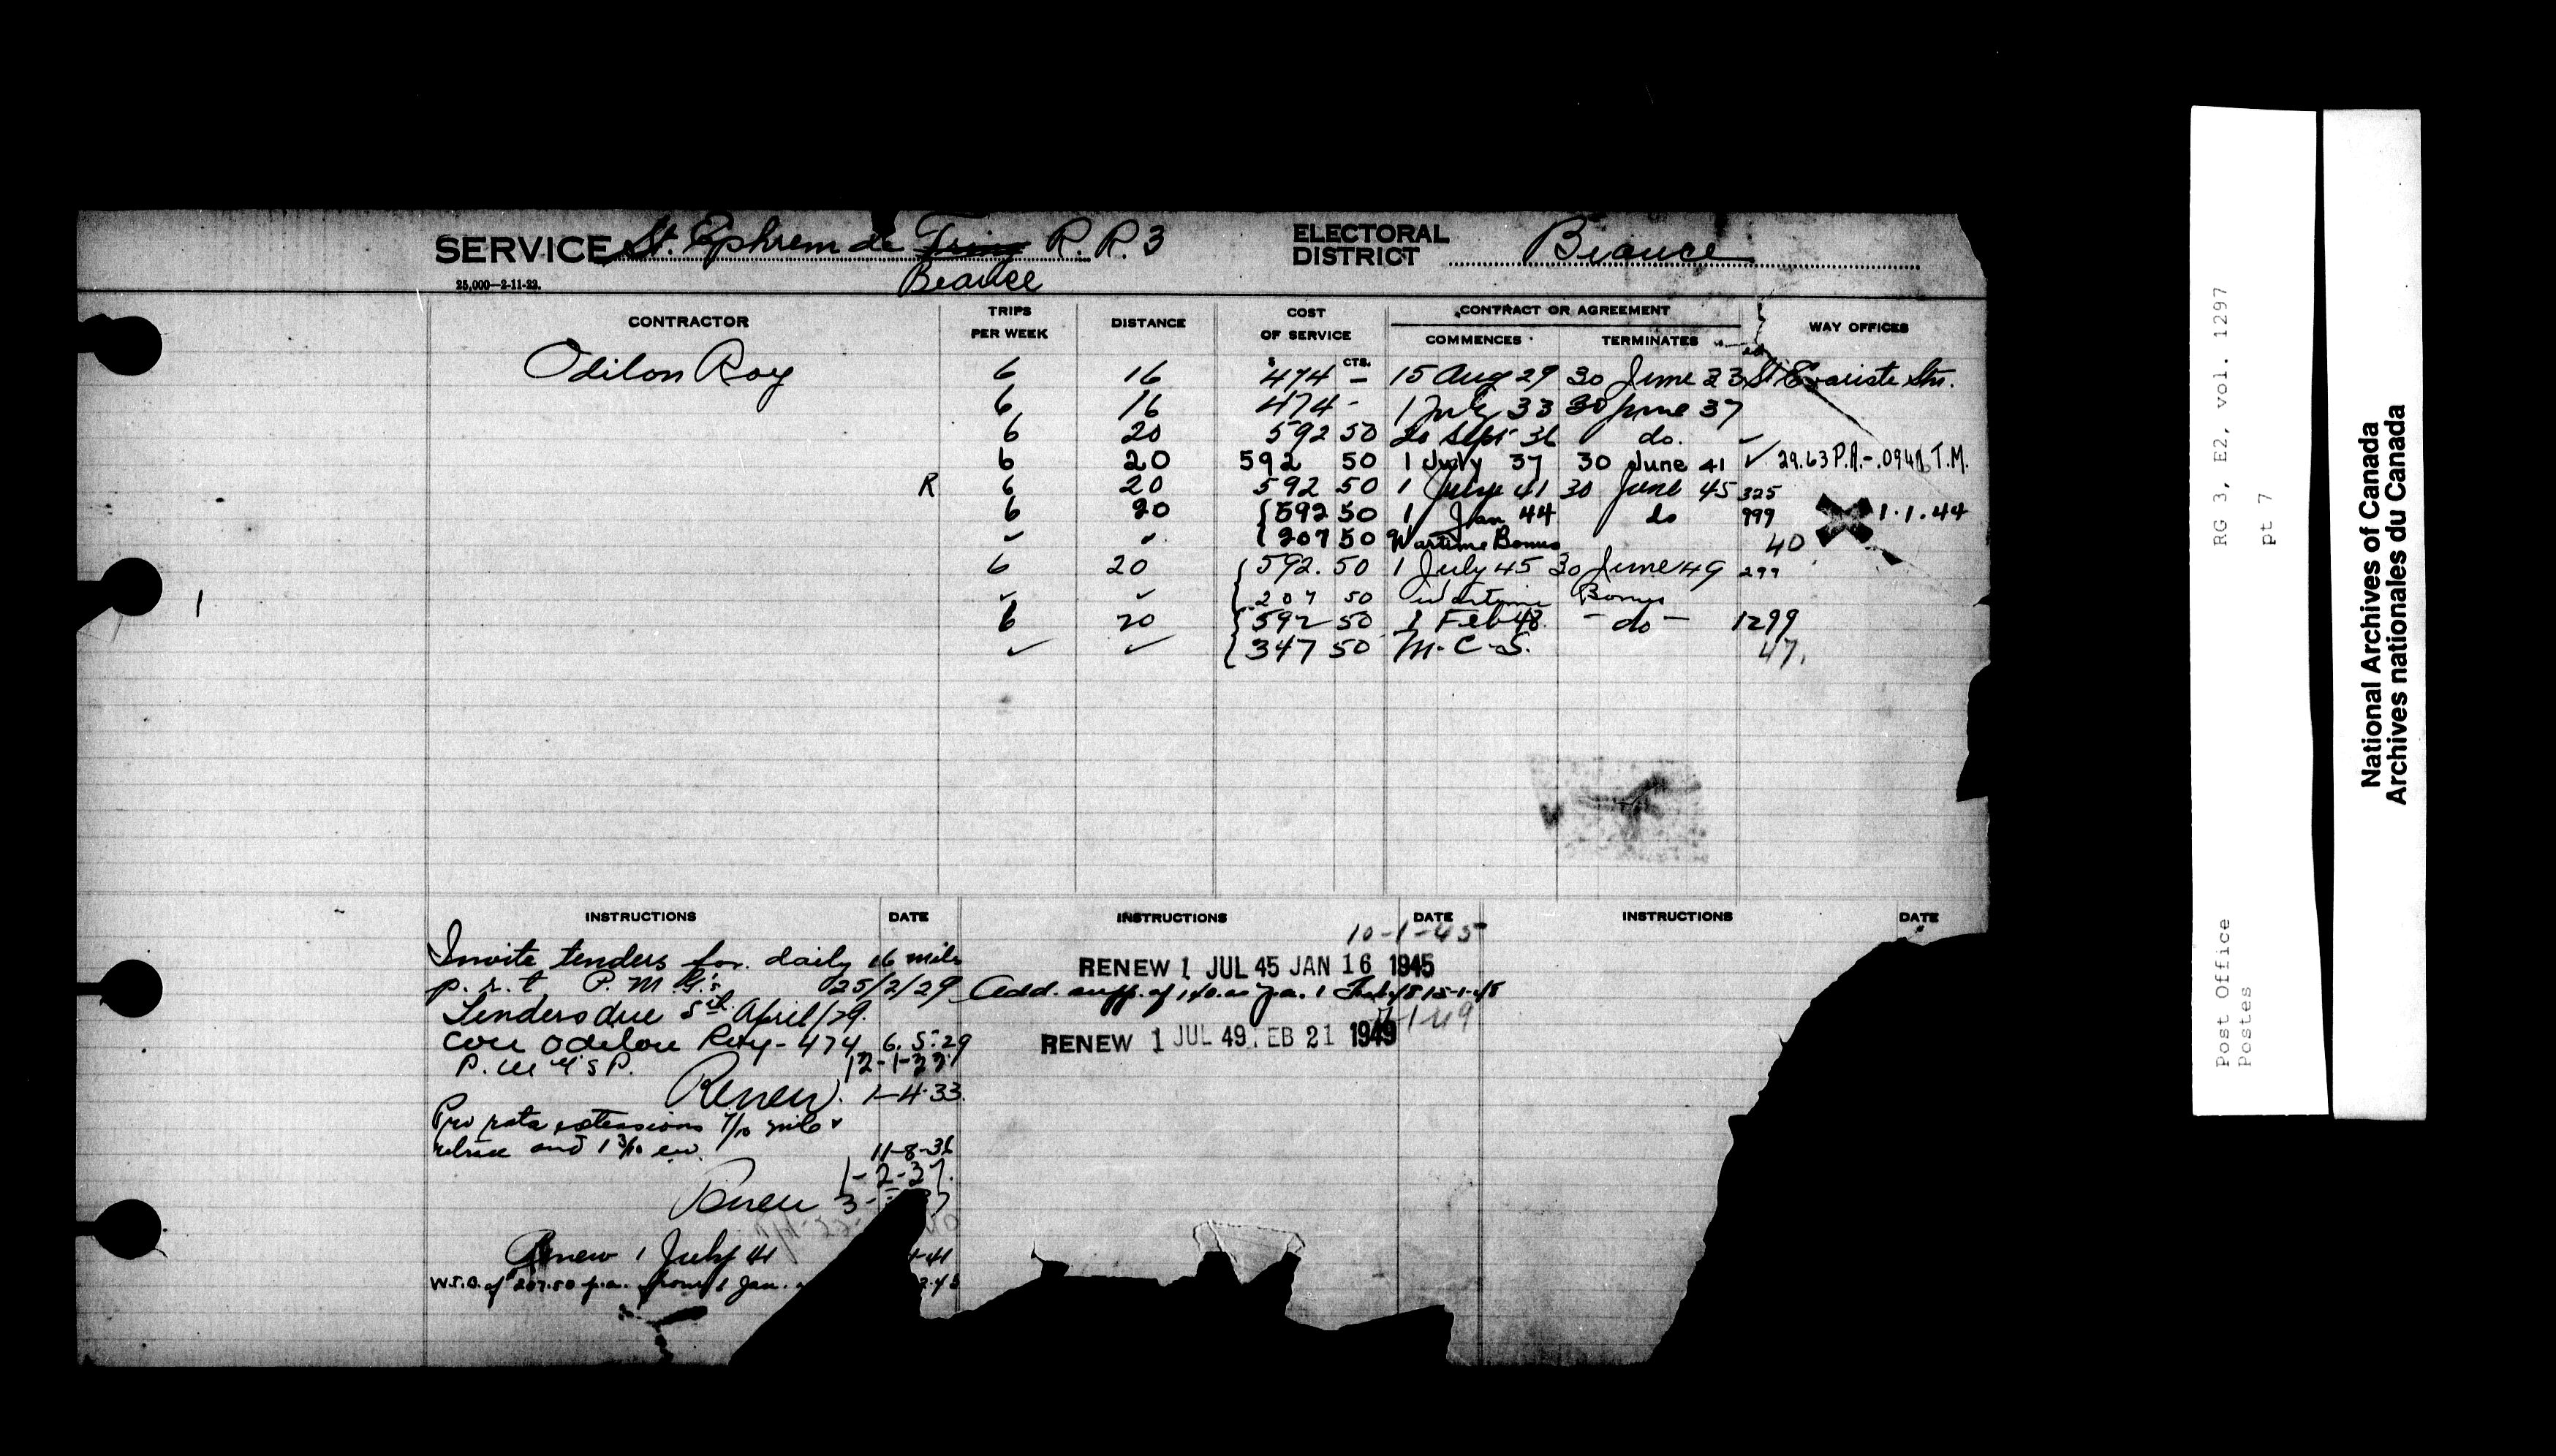 SERVICE St. Ephrem de Tring R. R. 3 ELECTORAL DISTRICT Beauce
Beauce
25,000—2-11-23.
CONTRACTOR TRIPS PER WEEK DISTANCE COST OF SERVICE CONTRACT OR AGREEMENT WAY OFFICES
COMMENCES TERMINATES
$ CTS.
Odilon Roy 6 16 474 – 15 Aug 29 30 June 33 St Evariste Stn.
6 16 474 - 1 July 33 30 June 37
6 20 592 50 20 Sept 36 do. ✓
6 20 592 50 1 July 37 30 June 41 ✓ 29.63 P.A.-.094 T.M.
R 6 20 592 50 1 July 41 30 June 45 325
6 20 {592 50 1 Jan 44 do 999 1.1.44
✓ ✓ {207 50 Wartime Bonus 40
6 20 {592.50 1 July 45 30 June 49 299
✓ ✓ {207 50 Wartime Bonus
6 20 {592 50 1 Feb 48 - do - 1299
✓ ✓ {347 50 M.C.S. 47.
1
INSTRUCTIONS DATE INSTRUCTIONS DATE INSTRUCTIONS DATE
Invite tenders for daily 16 mile
p.s.t P.M.G.'s 25/2/29
Tenders due 5th April/29.
Con Odilon Roy - 474 6.5.29
P.M.G's P. 12-1-33
Renew. 1-4-33.
Pro rata extensions 7/10 mile
and 1 3/10 11-8-36
1-2-37.
Renew 3-
Renew 1 July 41 -41
W.S.B. of $207.50 p.a. from 1 Jan.
10-1-45
RENEW 1 JUL 45 JAN 16 1945
Add. supp. of 140.00 p.a. 1 Feb 48 15-1-48
-1-49
RENEW 1 JUL 49 FEB 21 1949
RG 3, E2, vol. 1297
pt 7
Post Office
Postes
National Archives of Canada
Archives nationales du Canada